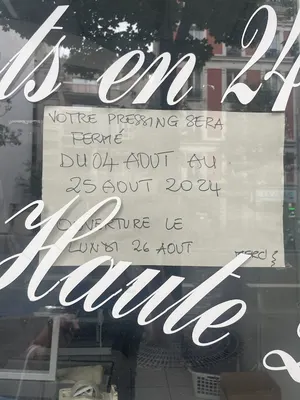 ts en 24
VOTRE PRESSING SERA
FERMÉ
DU 04 AOUT AU
25 AOUT 2024
OUVERTURE LE
LUNDI 26 AOUT
MERCI
Haute